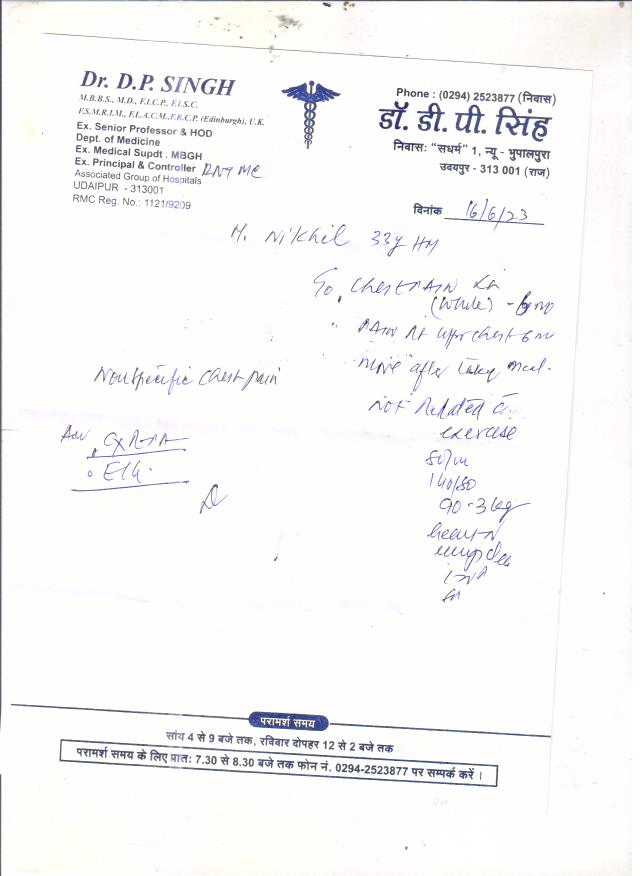 Dr. D.P. SINGH
M.B.B.S., M.D., F.I.C.P., F.I.S.C.
F.S.M.R.I.M., F.L.A.C.M.,F.R.C.P. (Edinburgh), U.K.
Ex. Senior Professor & HOD
Dept. of Medicine
Ex. Medical Supdt . MBGH
Ex. Principal & Controller RNT MC
Associated Group of Hospitals
UDAIPUR - 313001
RMC Reg. No.: 1121/9209
Phone : (0294) 2523877 (निवास)
डॉ. डी. पी. सिंह
निवासः "सधर्म" 1, न्यू - भुपालपुरा
उदयपुर - 313 001 (राज)
दिनांक 16/6/23
M. Nikhil 33y HM
Chest PAIN
(while)
PAIN At upper chest
more after taking meal.
Not Related
exercise
80/m
140/80
90-3 kg
heart N
lungs clear
Nonspecific chest pain
Adv. CXR-PA
ECG.
परामर्श समय
सांय 4 से 9 बजे तक, रविवार दोपहर 12 से 2 बजे तक
परामर्श समय के लिए प्रातः 7.30 से 8.30 बजे तक फोन नं. 0294-2523877 पर सम्पर्क करें ।